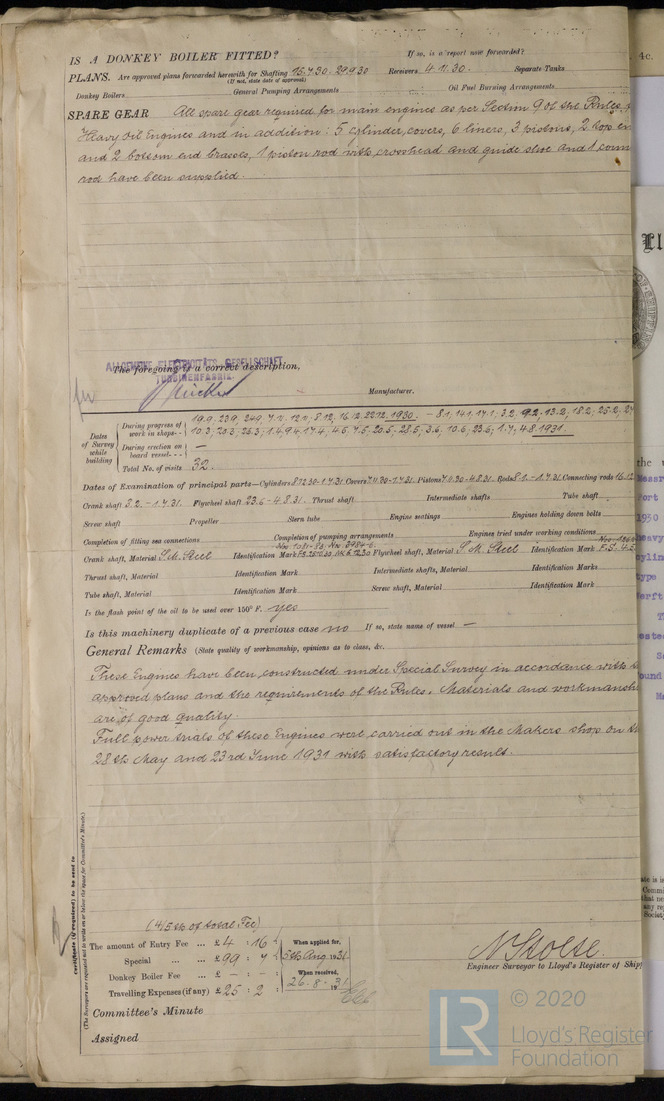 IS A DONKEY BOILER FITTED?
If so, is a report now forwarded?
PLANS. Are approved plans forwarded herewith for Shafting 15.7.30. 29.9.30 Receivers 4.11.30. Separate Tanks
(If not, state date of approval)
Donkey Boilers General Pumping Arrangements Oil Fuel Burning Arrangements
SPARE GEAR All spare gear required for main engines as per Section 9 of the Rules
Heavy Oil Engines and in addition: 5 cylinder covers, 6 liners, 3 pistons, 2 top en
and 2 bottom end brasses, 1 piston rod with crosshead and guide shoe and 1 conn
rod have been supplied.
ALLGEMEINE ELEKTRICITÄTS GESELLSCHAFT
TURBINENFABRIK.
The foregoing is a correct description,
Manufacturer.
Dates of Survey while building
During progress of work in shops - - 19.9. 23.9. 24.9. 7.11. 12.11. 8.12. 16.12. 22.12. 1930. – 8.1. 14.1. 17.1. 3.2. 9.2. 13.2. 18.2. 25.2.
10.3. 20.3. 25.3. 1.4. 9.4. 17.4. 4.5. 7.5. 20.5. 28.5. 3.6. 10.6. 23.6. 1.7. 4.8.1931.
During erection on board vessel - - –
Total No. of visits 32.
Dates of Examination of principal parts—Cylinders 8.12.30-1.7.31. Covers 7.11.30-1.7.31. Pistons 7.11.30-4.8.31. Rods 8.1.-1.7.31. Connecting rods 16.12
Crank shaft 3.2.-1.7.31. Flywheel shaft 23.6-4.8.31. Thrust shaft Intermediate shafts Tube shaft
Screw shaft Propeller Stern tube Engine seatings Engines holding down bolts
Completion of fitting sea connections Completion of pumping arrangements Engines tried under working conditions
Crank shaft, Material S.M. Steel Identification Mark Flywheel shaft, Material S.M. Steel Identification Mark
Thrust shaft, Material Identification Mark Intermediate shafts, Material Identification Marks
Tube shaft, Material Identification Mark Screw shaft, Material Identification Mark
Is the flash point of the oil to be used over 150° F. yes
Is this machinery duplicate of a previous case no If so, state name of vessel –
General Remarks (State quality of workmanship, opinions as to class, &c.
These Engines have been constructed under Special Survey in accordance with
approved plans and the requirements of the Rules. Materials and workmansh
are of good quality.
Full power trials of these Engines were carried out in the Makers shop on th
28th May and 23rd June 1931 with satisfactory result.
Certificate (if required) to be sent to
(The Surveyors are requested not to write on or below the space for Committee's Minute.)
(4/5th of total Fee)
The amount of Entry Fee ... £ 4 : 16 :
Special ... ... £ 99 : 7 :
Donkey Boiler Fee ... £ – : – :
Travelling Expenses (if any) £ 25 : 2 :
When applied for,
5th Aug. 1931.
When received,
26.8.1931
N Stolse.
Engineer Surveyor to Lloyd's Register of Ship
Committee's Minute
Assigned
4c.
Ll
Messr
Port
1950
heavy
cylin
type
Werft
LR
© 2020
Lloyd's Register
Foundation